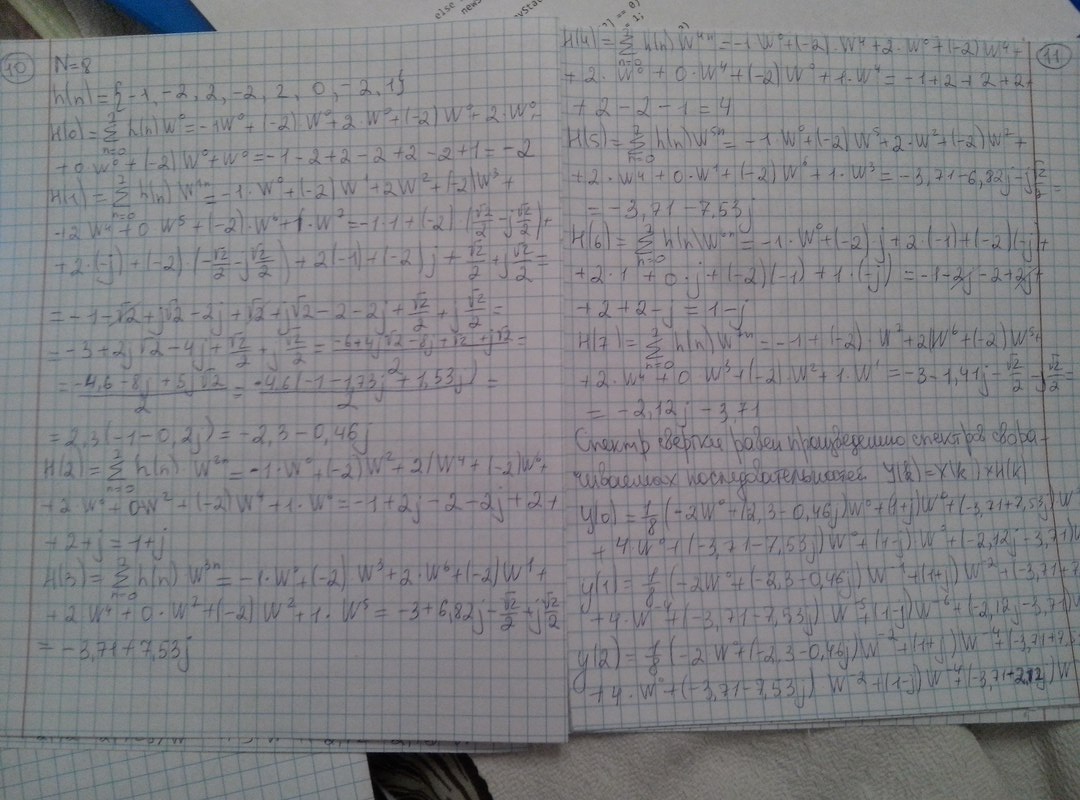 else news
vStat
] == 0)
1;
10
N=8
h(n)={-1, -2, 2, -2, 2, 0, -2, 1}
H(0)=∑ h(n)W⁰=-1W⁰+(-2)·W⁰+2·W⁰+(-2)W⁰+2·W⁰+
n=0
+0·W⁰+(-2)W⁰+W⁰=-1-2+2-2+2-2+1=-2
H(1)=∑ h(n)W¹ⁿ=-1·W⁰+(-2)W¹+2W²+(-2)W³+
n=0
+2W⁴+0W⁵+(-2)·W⁶+1·W⁷=-1·1+(-2)(√2/2-j√2/2)+
+2·(-j)+(-2)(-√2/2-j√2/2)+2(-1)+(-2)j+√2/2+j√2/2=
=-1-√2+j√2-2j+√2+j√2-2-2j+√2/2+j√2/2=
=-3+2j√2-4j+√2/2+j√2/2=(-6+4j√2-8j+√2+j√2)/2=
=(-4,6-8j+5j√2)/2=(-4,6(-1-1,73j+1,53j))/2=
=2,3(-1-0,2j)=-2,3-0,46j
H(2)=∑ h(n)·W²ⁿ=-1·W⁰+(-2)W²+2·W⁴+(-2)W⁶+
n=0
+2W⁰+0W²+(-2)W⁴+1·W⁶=-1+2j-2-2j+2+
+2+j=1+j
H(3)=∑ h(n)·W³ⁿ=-1·W⁰+(-2)W³+2·W⁶+(-2)W¹+
n=0
+2W⁴+0·W⁷+(-2)W²+1·W⁵=-3+6,82j-√2/2+j√2/2
=-3,71+7,53j
11
H(4)=∑ h(n)W⁴ⁿ=-1·W⁰+(-2)·W⁴+2·W⁰+(-2)W⁴+
n=0
+2·W⁰+0·W⁴+(-2)W⁰+1·W⁴=-1+2+2+2+
+2-2-1=4
H(5)=∑ h(n)W⁵ⁿ=-1·W⁰+(-2)W⁵+2·W²+(-2)W⁷+
n=0
+2·W⁴+0·W¹+(-2)W⁶+1·W³=-3,71-6,82j-j√2/2=
=-3,71-7,53j
H(6)=∑ h(n)W⁶ⁿ=-1·W⁰+(-2)j+2·(-1)+(-2)(-j)+
n=0
+2·1+0·j+(-2)(-1)+1·(-j)=-1-2j-2+2j+
+2+2-j=1-j
H(7)=∑ h(n)W⁷ⁿ=-1+(-2)·W⁷+2W⁶+(-2)W⁵+
n=0
+2·W⁴+0·W³+(-2)W²+1·W¹=-3-1,41j-√2/2-j√2/2=
=-2,12j-3,71
Спектр свертки равен произведению спектров свора-
чиваемых последовательностей. Y(k)=X(k)×H(k)
y(0)=1/8(-2W⁰+(2,3-0,46j)W⁰+(1+j)W⁰+(-3,71+7,53j)W⁰
+4·W⁰+(-3,71-7,53j)W⁰+(1-j)W⁰+(-2,12j-3,71)W
y(1)=1/8(-2W⁰+(-2,3-0,46j)W⁻¹+(1+j)W⁻²+(-3,71+7,5
+4·W⁻⁴+(-3,71-7,53j)W⁻⁵+(1-j)W⁻⁶+(-2,12j-3,71)W
y(2)=1/8(-2W⁰+(-2,3-0,46j)W⁻²+(1+j)W⁻⁴+(-3,71+7,5
+4·W⁰+(-3,71-7,53j)W⁻²+(1-j)W⁻⁴+(-3,71+2,12j)W